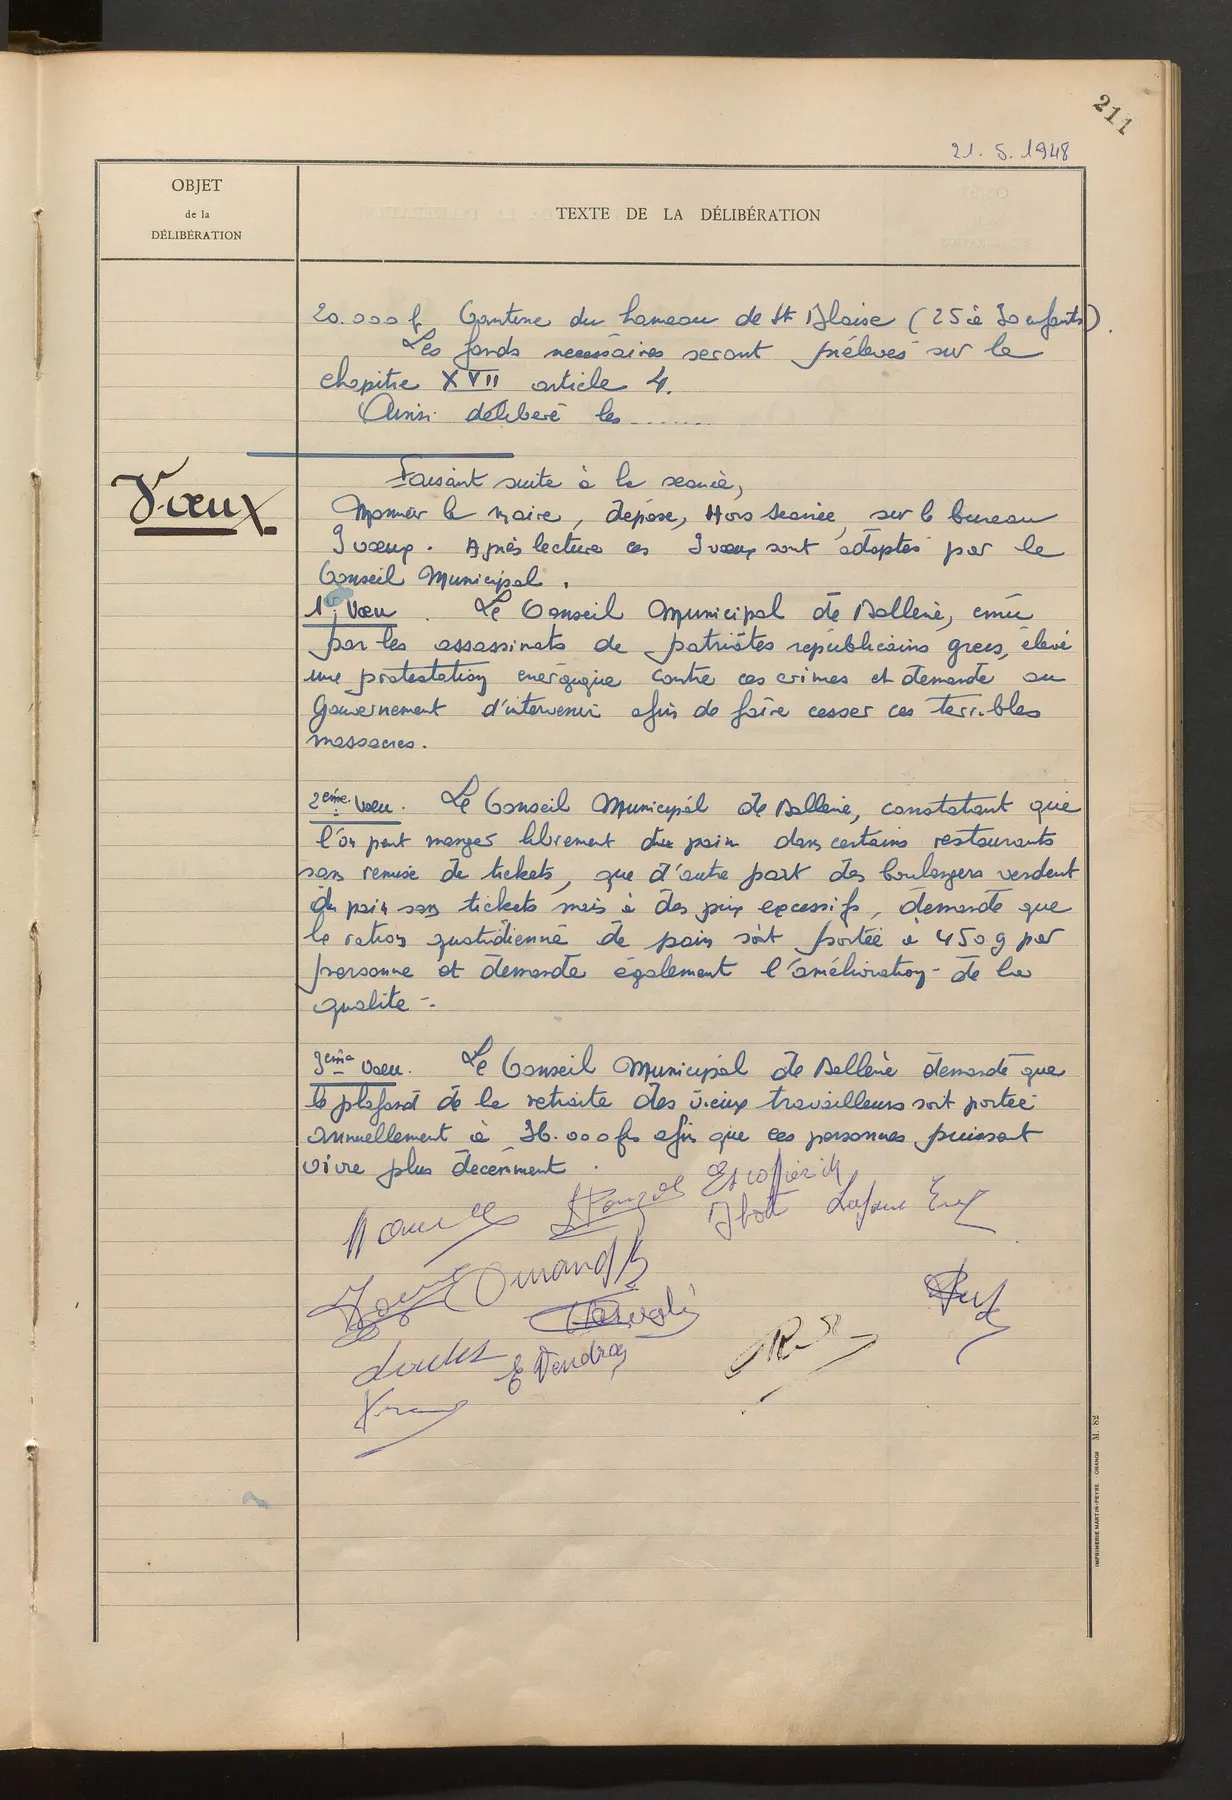 211
21. 5. 1948
OBJET
de la
DÉLIBÉRATION
TEXTE DE LA DÉLIBÉRATION
20.000 f Cantine du hameau de St Blaise (25 à 30 enfants).
Les fonds necessaires seront préleves sur le
chapitre XVII article 4.
Ainsi déliberé les........
Voeux
Faisant suite à la seance,
Monsieur le maire, dépose, Hors seance, sur le bureau
3 voeux. Après lecture ces 3 voeux sont adoptés par le
Conseil Municipal.
1er Voeu. Le Conseil Municipal de Bollene, emu
par les assassinats de patriotes republicains grecs, eleve
une protestation energique contre ces crimes et demande au
Gouvernement d'intervenir afin de faire cesser ces terribles
massacres.
2eme Voeu. Le Conseil Municipal de Bollene, constatant que
l'on peut manger librement du pain dans certains restaurants
sans remise de tickets, que d'autre part des boulangers vendent
du pain sans tickets mais à des prix excessifs, demande que
la ration quotidienne de pain soit portée à 450 g par
personne et demande également l'amélioration de la
qualite -.
3eme Voeu. Le Conseil Municipal de Bollene demande que
le plafond de la retraite des vieux travailleurs soit portée
annuellement à 36.000 frs afin que ces personnes puissent
vivre plus decemment.
E Vendran
IMPRIMERIE MARTIN-PEYRE - ORANGE M. 82